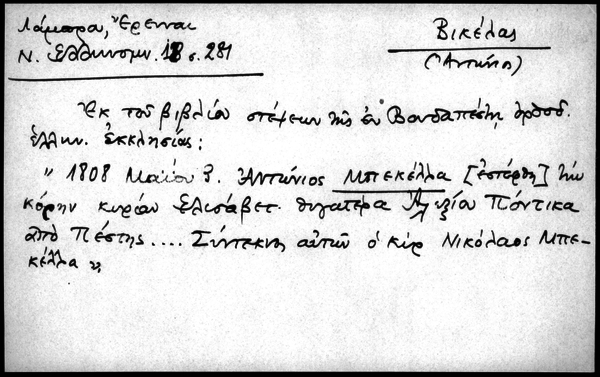 Λάμπρου, Ἔρευναι
Βικέλας
Ν. Ἑλληνομν. 18 σ. 281
(Ἀντώνιος)
Ἐκ τοῦ βιβλίου στέψεων τῆς ἐν Βουδαπέστῃ ὀρθοδ.
ἑλλην. ἐκκλησίας:
" 1808 Μαΐου 3. Ἀντώνιος Μπεκέλλα [ἐστέφθη] τὴν
κόρην κυρίαν Ἐλισάβετ θυγατέρα Πόντικα
ἀπὸ Πέστης .... Σύντεκνος αὐτῶν ὁ κὺρ Νικόλαος Μπε-
κέλλα "